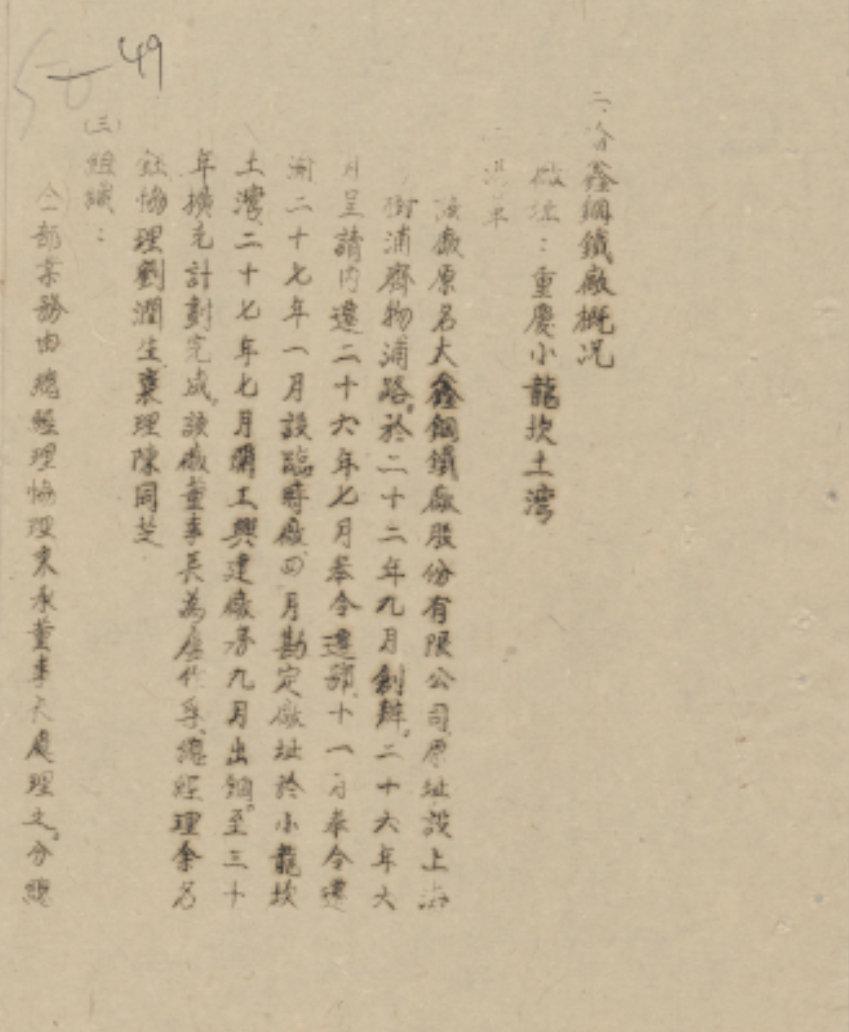 鑫鋼鐵廠概況
廠址：重慶小龍坎土灣
沿革
該廠原名大鑫鋼鐵廠股份有限公司原址設上海
衡浦齊物浦路。於二十二年九月創辦。二十六年六
月呈請內遷二十六年七月奉令遷鄂、十一月奉令遷
渝二十七年一月設臨時廠、四月勘定廠址於小龍坎
土灣、二十七年七月開工興建廠房九月出鋼。至三十
年擴充計劃完成。該廠董事長為盧作孚、總經理余名
鈺協理劉潤生襄理陳同芝
(三)組織：
全部業務由總經理協理秉承董事長處理之。分總
49